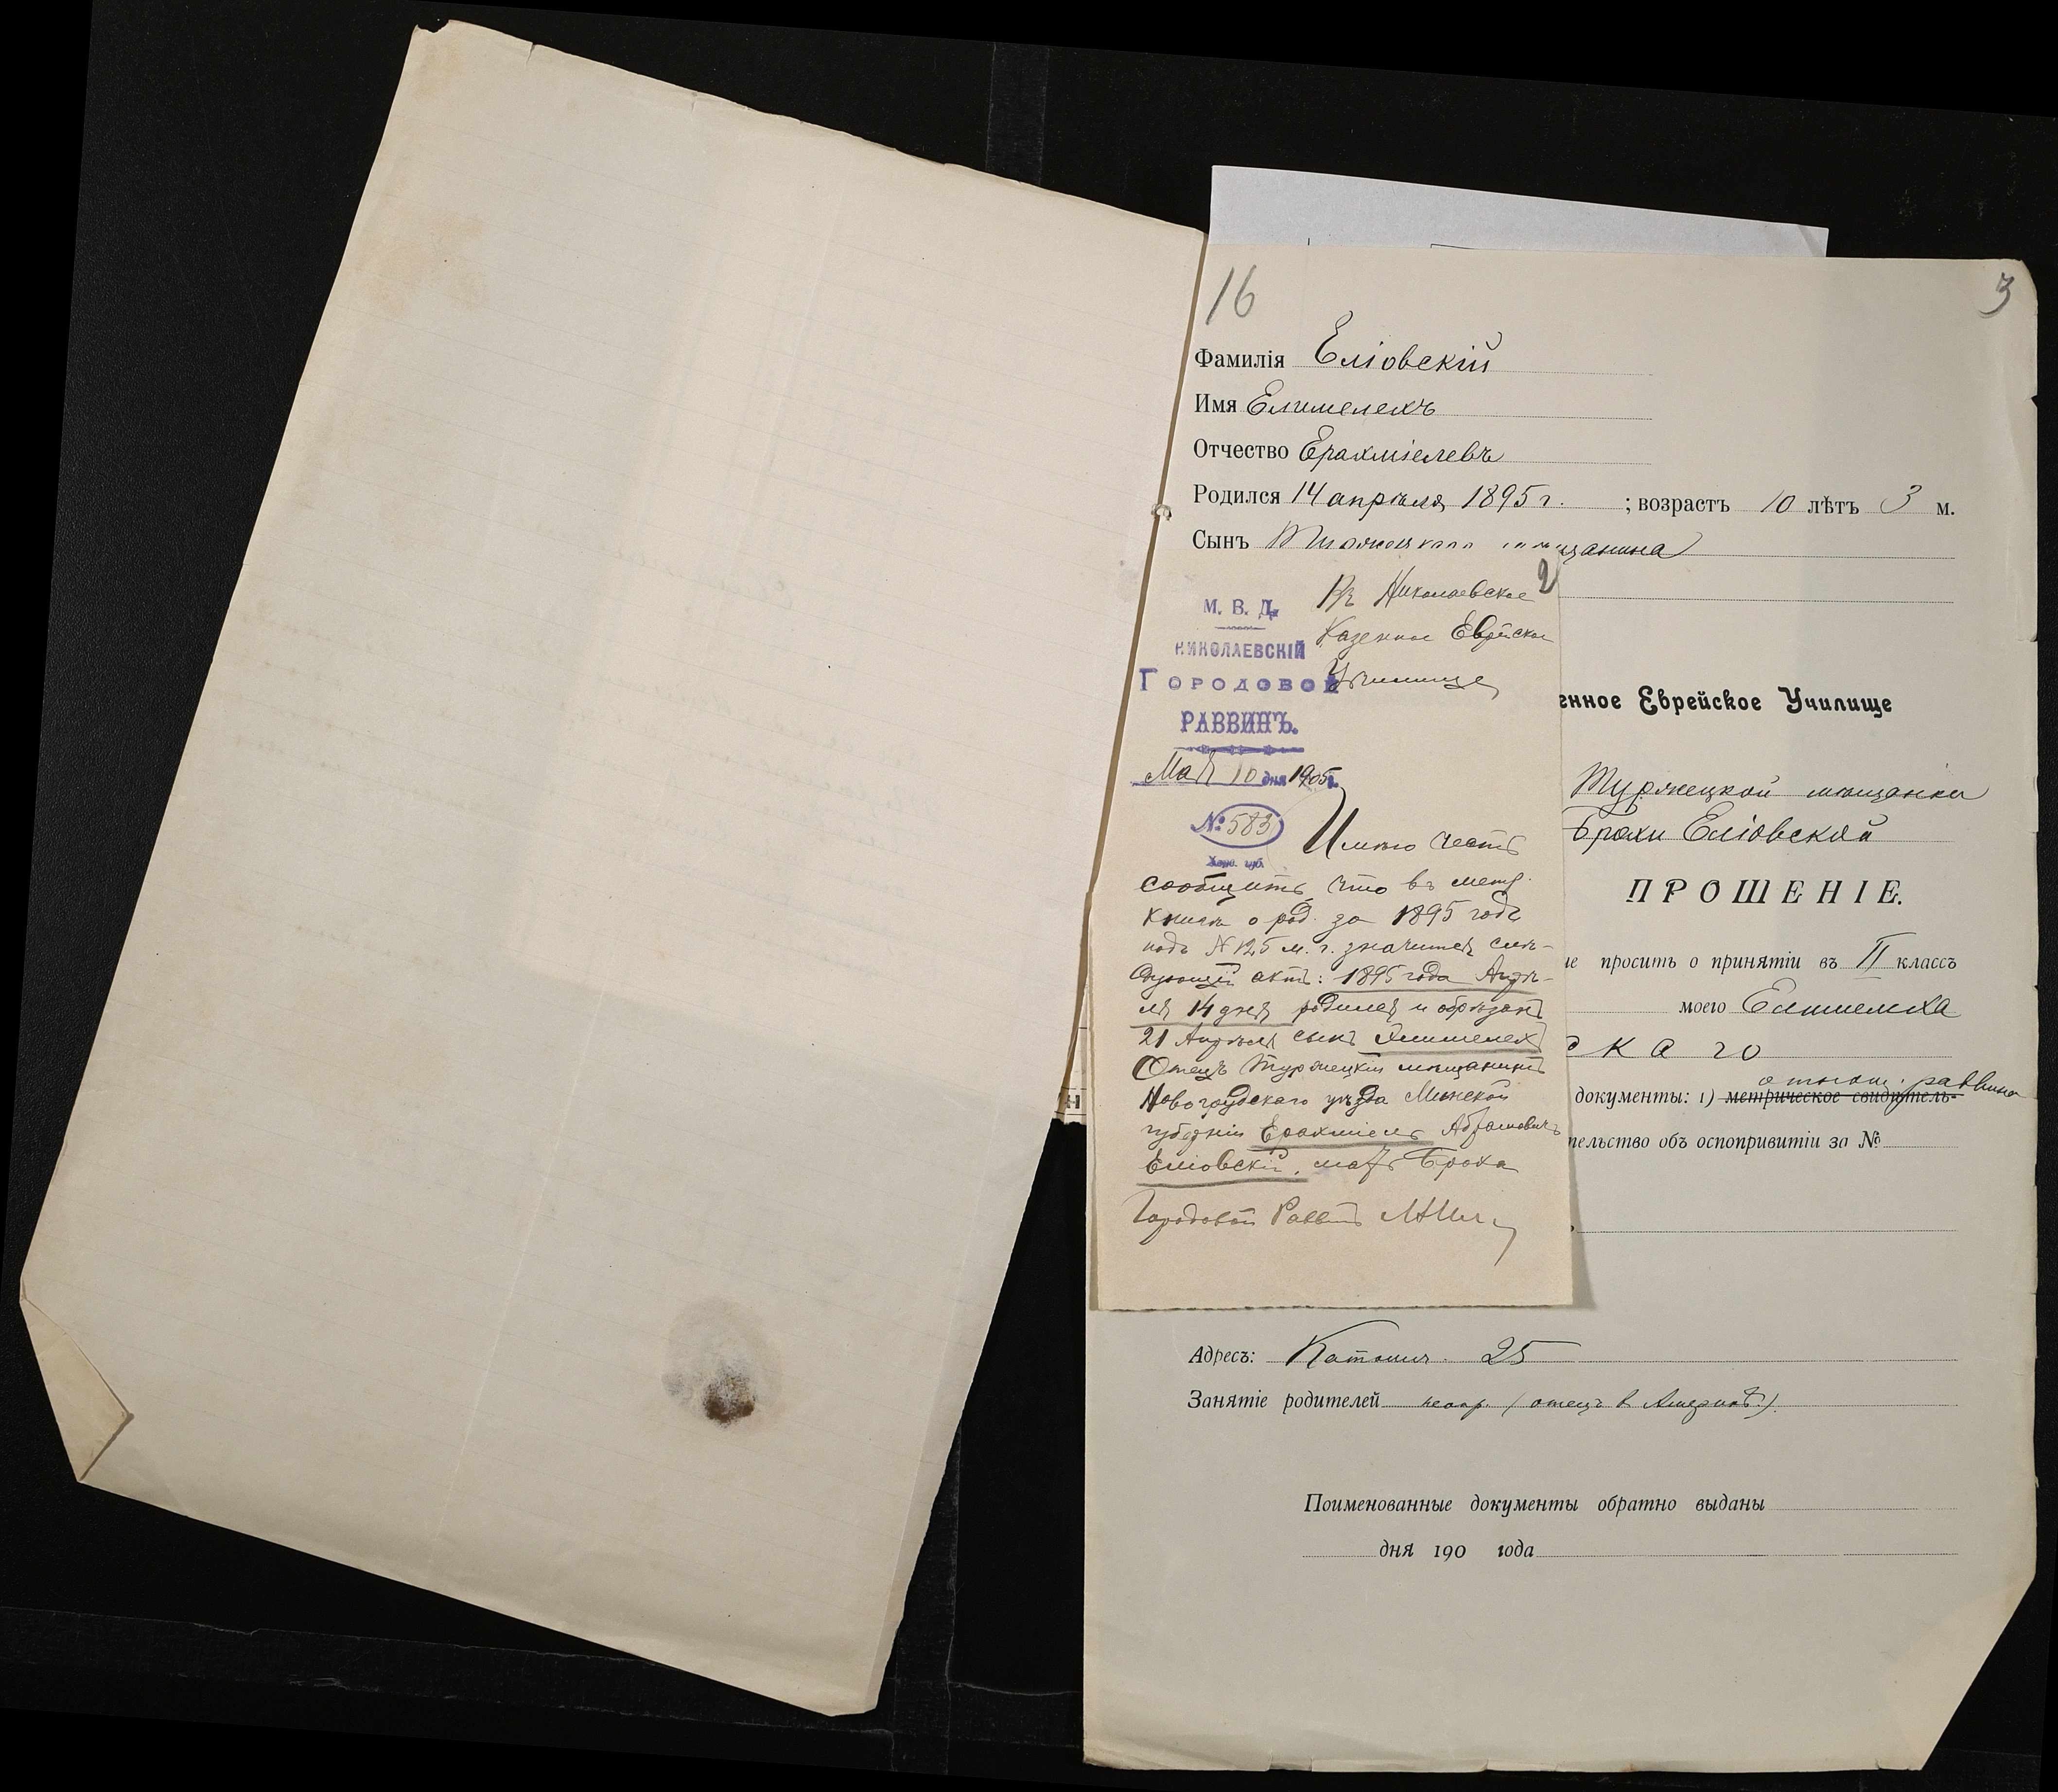 16
3
Фамилія Еліовскій
Имя Елимелехъ
Отчество Ерахміелевъ
Родился 14 апрѣля 1895 г. ; возрастъ 10 лѣтъ 3 м.
Сынъ мѣщанина
2
М. В. Д.
НИКОЛАЕВСКІЙ
ГОРОДОВОЙ
РАВВИНЪ.
Мая 16 дня 1905 г.
№ 583
Херс. губ.
Въ Николаевское
Казенное Еврейское
Училище
Имѣю честь
сообщить, что въ метр.
книгѣ о род. за 1895 годъ
подъ № 125 м. г. значится слѣ-
дующій актъ: 1895 года Апрѣ-
ля 14 дня родился и обрѣзанъ
21 Апрѣля сынъ Элимелех
Отецъ Туржецкій мѣщанинъ
Новогрудскаго уѣзда Минской
губерніи Ерахміель Абрамовичъ
Еліовскій, мать Броха
Городовой Раввинъ
енное Еврейское Училище
Туржецкой мѣщанки
Брохи Еліовской
ПРОШЕНІЕ.
ие просить о принятіи въ II классъ
моего Елимелеха
с к а го
отнош. раввина
документы: 1) метрическое свидѣтель-
тельство объ оспопривитіи за №
Адресъ: 25
Занятіе родителей неопр. (отецъ в Америкѣ).
Поименованные документы обратно выданы
дня 190 года